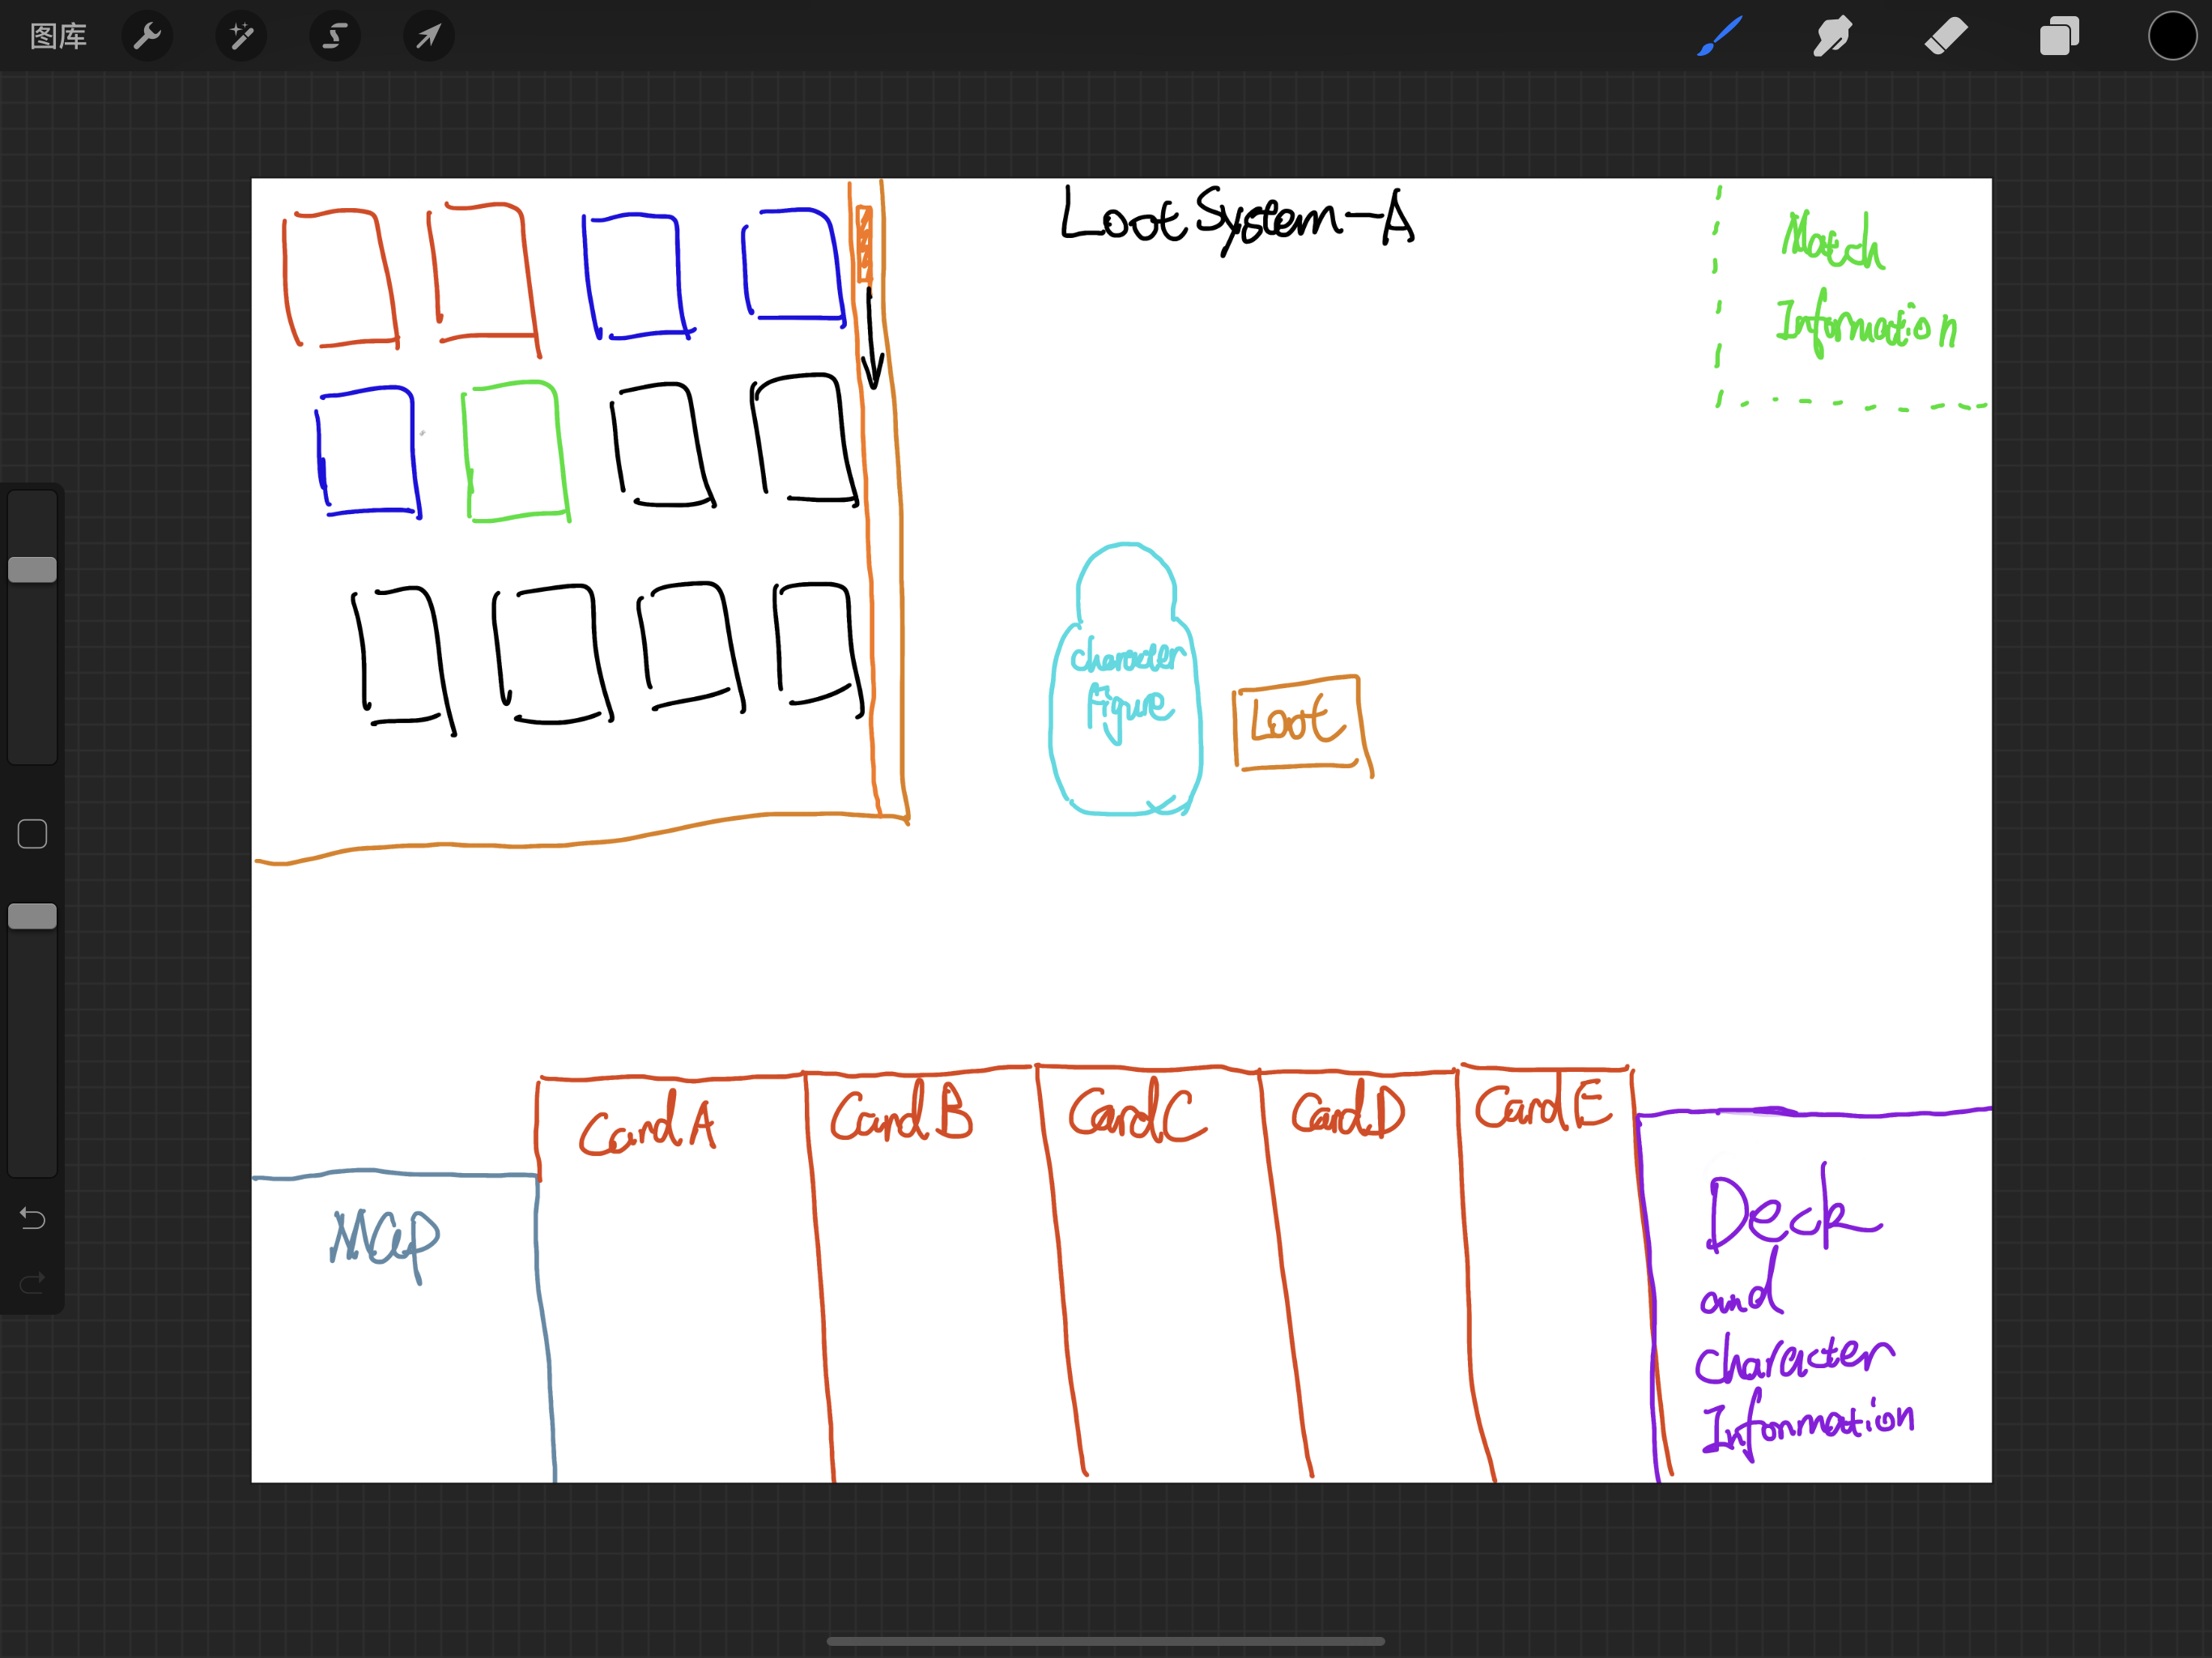 图库
Loot System-A
Match
Information
Character
Figure
Loot
Card A
Card B
Card C
Card D
Card E
Map
Deck
and
Character
Information